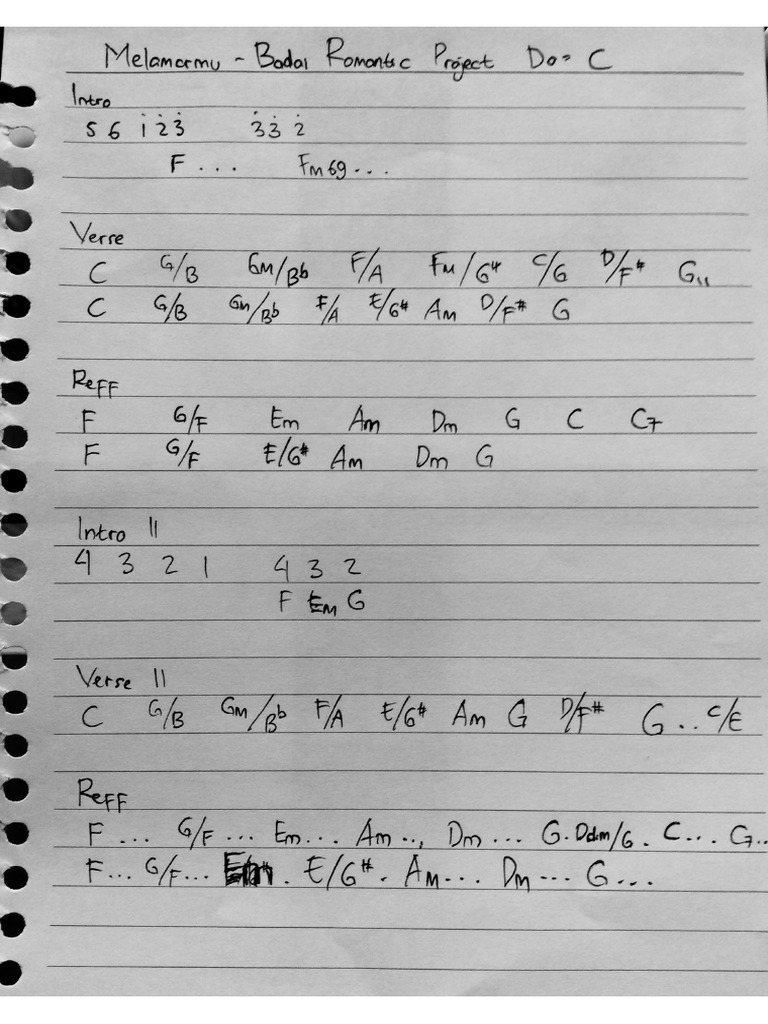 Melamarmu - Badai Romantic Project Do = C
Intro
5 6 i̇ 2̇ 3̇ 3̇ 3̇ 2̇
F . . . Fm69 . . .
Verse
C G/B Gm/Bb F/A Fm/G# C/G D/F# G,,
C G/B Gm/Bb F/A E/G# Am D/F# G
Reff
F G/F Em Am Dm G C C7
F G/F E/G# Am Dm G
Intro II
4 3 2 1 4 3 2
F Em G
Verse II
C G/B Gm/Bb F/A E/G# Am G D/F# G .. C/E
Reff
F ... G/F ... Em... Am .., Dm ... G. Ddim/G . C... C7..
F... G/F... . E/G#. Am.... Dm .... G...